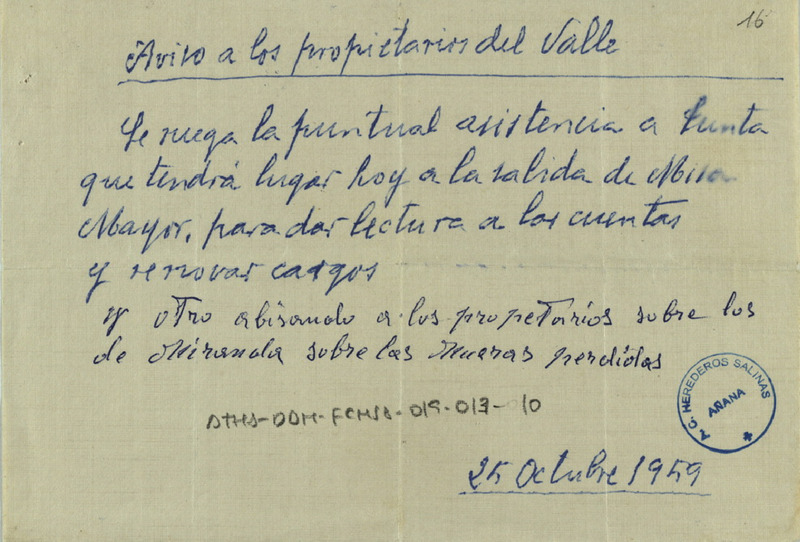 16
Aviso a los propietarios del Valle
Se ruega la puntual asistencia a Junta
que tendrá lugar hoy a la salida de Misa
Mayor, para dar lectura a las cuentas
y renovar cargos
y otro abisando a los propetarios sobre los
de Miranda sobre las Mueras perdidas
A. C. HEREDEROS SALINAS
AÑANA
ATHS-DDH-FCMSA-019-013-10
25 Octubre 1959